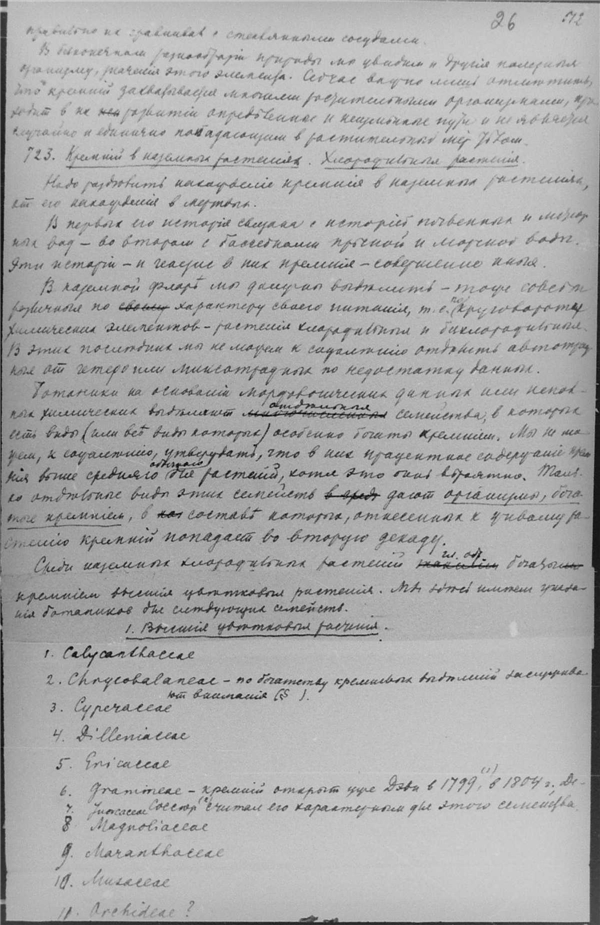 26 512
правильно их сравнивая с стеклянными сосудами.
В бесконечном разнообразии природы мы увидим и другия полезныя
организму, значения этого элемента. Сейчас важно лишь отметить,
что кремний захватывается многими растительными организмами, про-
ходит в их развитии определенные и неслучайные пути и не является
случайно и единично попадающим в растительный мир телом.
723. Кремний в наземных растениях. Хлорофильныя растения.
Надо различить нахождение кремния в наземных растениях,
от его нахождения в морских.
В первых его история связана с историей почвенных и
вод – во вторых с бассейнами пресной и морской воды.
Эти истории – и генезис в них кремния – совершенно иные.
В наземной флоре мы должны выделить – тоже совсем
различныя по своему характеру своего питания, т.е. по круговороту
химических элементов – растения хлорофильныя и безхлорофильныя.
В этих последних мы не можем к сожалению отделить автотроф-
ныя от гетеро или миксотрофных по недостатку данных.
Ботаники на основании морфологических данных или непол-
ных химических выделяют отдельныя семейства, в которых
есть виды (или все виды которых) особенно богаты кремнием. Мы не мо-
жем, к сожалению, утверждать, что в них процентное содержание крем-
ния выше среднего обычного для растений, хотя это очень вероятно. Толь-
ко отдельные виды этих семейств дают организмы, бога-
тые кремнием, в составе которых, отнесенных к живому ра-
стению кремний попадает во вторую декаду.
Среди наземных хлорофильных растений гл. обр. богаты
кремнием высшия цветковыя растения. Мы имеем указа-
ния ботаников для следующих семейств.
1. Высшия цветковыя растения.
1. Calycanthaceae
2. Chrysobalaneae – по богатству кремневых выделений заслужива-
ют внимания (§ ).
3. Cyperaceae
4. Dilleniaceae
5. Ericaceae
6. Gramineae – кремний открыт уже Дэви в 1799,(1) в 1804 г. Де-
7. Juncaceae Соссюр считал его характерным для этого семейства.
8. Magnoliaceae
9. Maranthaceae
10. Musaceae
11. Orchideae?